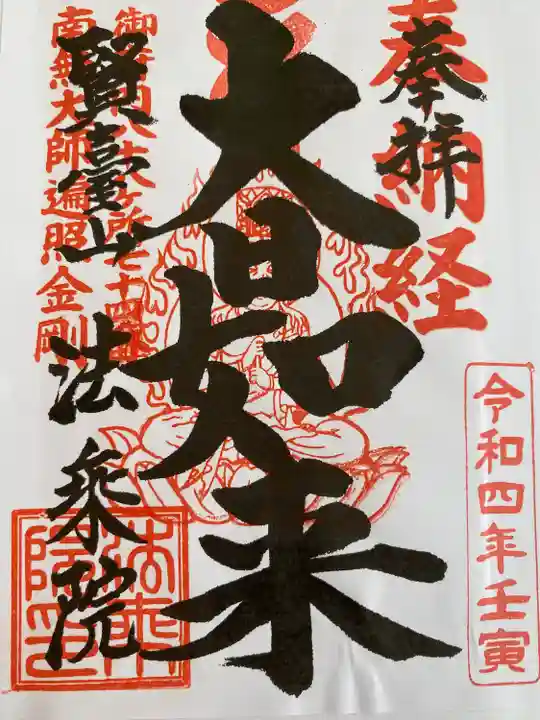 奉拝
奉納経
令和四年壬寅
大日如来
七十四番
南無大師遍照金剛
賢臺山 法乗院
法乗院印